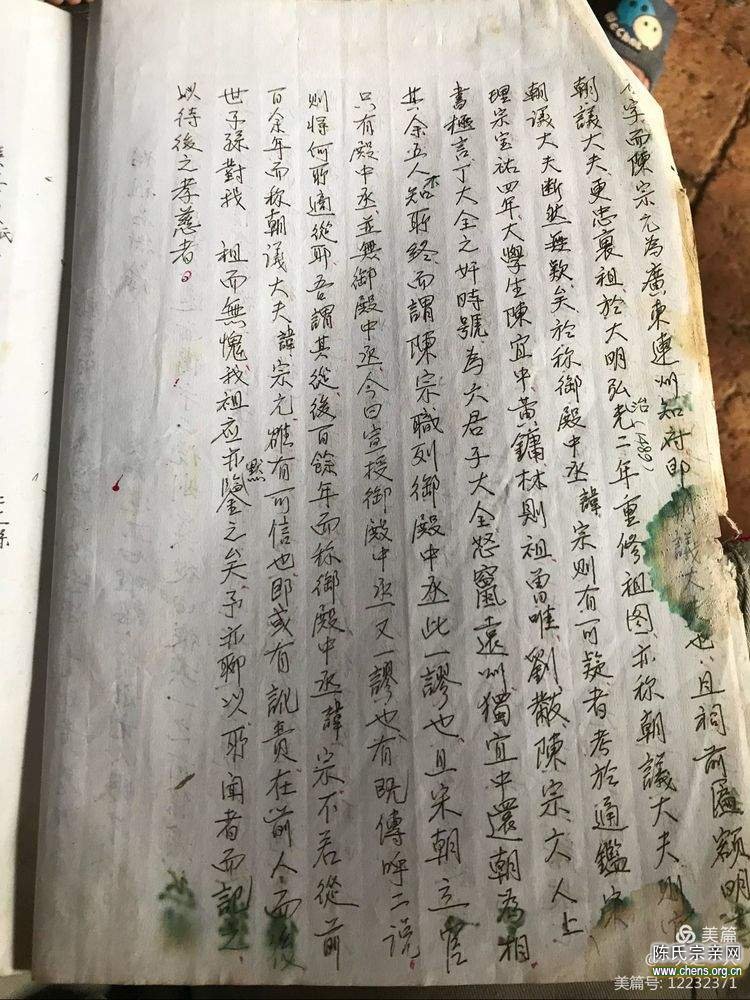 字而陳宗元為廣東連州知府即朝議大也、且祠前匾額明
朝議大夫、更忠裏祖於大明弘光二年重修祖图、亦称朝議大夫則
治(1489)
朝議大夫断然無欺矣、於称御殿中丞、諱宗則有可疑者、考於通鑑宋
理宗宝祐四年、大學生陳宜中、黄鏞、林則祖、曾唯、劉黻、陳宗、六人上
書極言丁大全之奸時號為六君子大全怒竄遠州獨宜中還朝為相
其余五人不知所終而謂陳宗職列御殿中丞此一謬也、且宋朝立官
只有殿中丞、並無御殿中丞、今曰宣授御殿中丞又一謬也、有既傳呼二说
則将何所適從耶、吾謂其從後百餘年而称御殿中丞諱宗不若從前
百余年而称朝議大夫諱宗元雖有可信也即或有訛責在前人而後
世子孫對我 祖而無愧我祖应亦默鑒之矣予亦聊以所闻者而記之
以待後之孝慈者。
WeChat
美篇
陈氏宗亲网
www.chens.org.cn
美篇号: 12232371